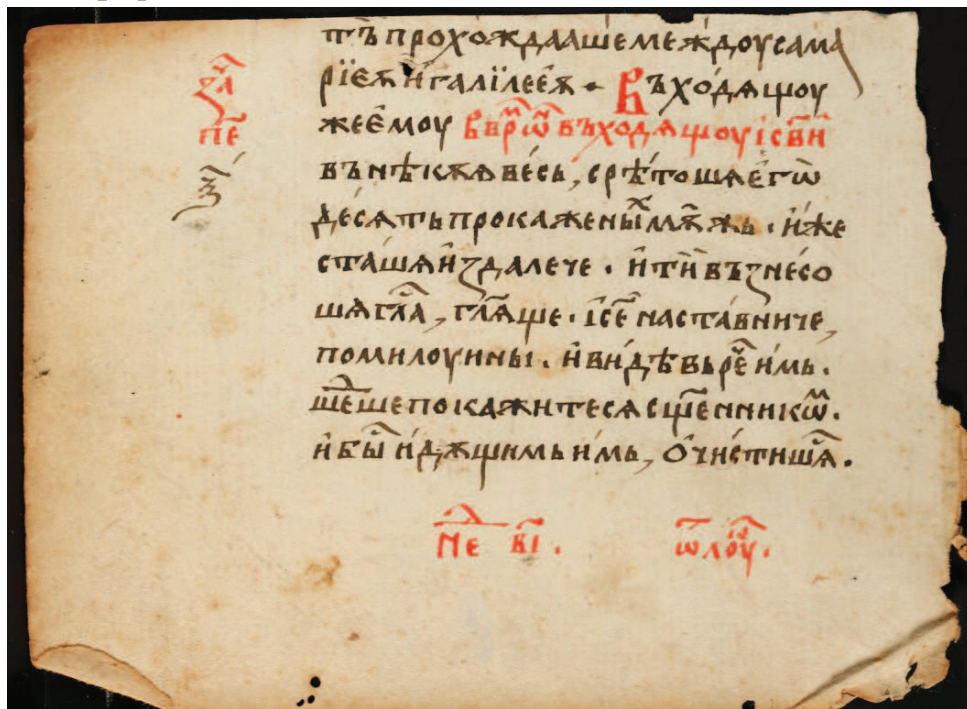 тъ прохождааше междоу сама
рїеѫ и҆ галїлееѫ • Въходѧщоу
за҇ч
же є҆моу в вр҇мѡ въходѧщоу і҆с в҇нѝ
п҃е
въ нѣкѫѧ весь, срѣтошѧ є҆го̀
десѧть прокаженыⷯ мѫжь . и҆же
сташѧ и҆здалече . и҆ тѝ възнесо
шѧ гл҇а, гл҃ѧще . і҆с҃е наставниче,
помилоуи ны . и҆ видѣвь рⷱ҇е и҆мь .
шеⷣше покажите сѧ сщ҃енникѡⷨ .
и҆ бы҇ и҆дѫщимь и҆мь, ѻ҆чистишѧ҇ .
неⷣ в҃і . ѿ лоу҇ .